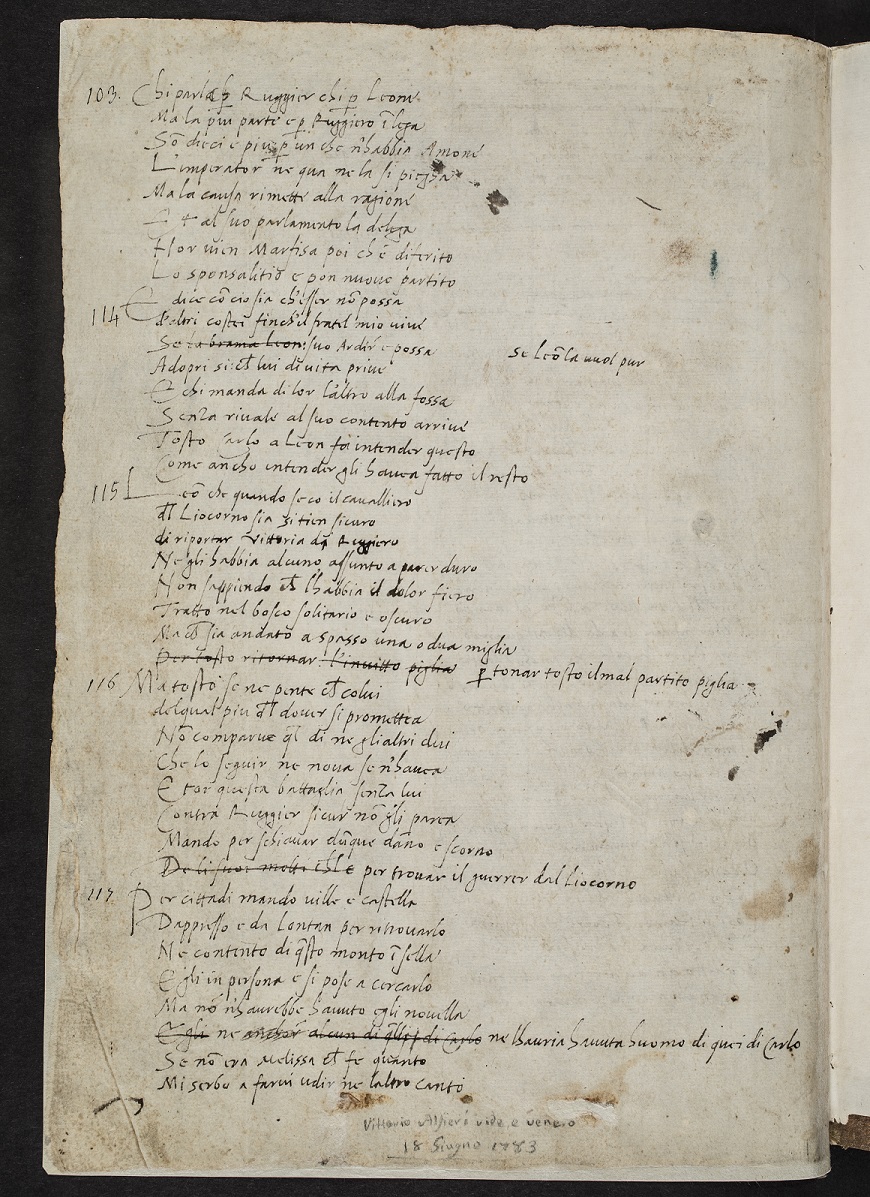 103. Chi parla p̱ Ruggier chi p̱ Leone
Ma la piu parte e p̱ Ruggiero ĩ lega
Sõ dieci e piu p̱ un che n'habbia Amone
L'imperator ne qua ne la si piega
Ma la causa rimette alla ragione
Et al suo parlamento la delega
Hor vien Marfisa poi ch'è diferito
Lo sponsalitio e pon nuovo partito
114 E dice cõ cio sia ch'esser nõ possa
D'altri costei finch'il fratel mio vive
Se la brama Leon: suo Ardir e possa se Leõ la vuol pur
Adopri si: ch̃ lui di vita prive
E chi manda di lor l'altro alla fossa
Senza rivale al suo contento arrive
Tosto Carlo a Leon fa intender questo
Come ancho intender gli havea fatto il resto
115 Leõ che quando seco il cavalliero
dl Liocorno sia si tien sicuro
di riportar vittoria di Ruggiero
Ne gli habbia alcuno assunto a parer duro
Non sappiendo ch̃ l'habbia il dolor fiero
Tratto nel bosco solitario e oscuro
Ma ch̃ sia andato a spasso una o dua miglia
Per tosto ritornar l'invitto piglia p̱ tonar tosto il mal partito piglia
116 Ma tosto se ne pente ch̃ colui
del qual piu dl dover si promettea
Nõ comparve ql di ne gli altri dui
Che lo seguir ne nova se n'havea
E tor questa battaglia senza lui
Contra Ruggier sicur nõ gli parea
Mando per schivar dunque dãno e scorno
per trovar il guerrer dal Liocorno
117 Per cittadi mando ville e castella
Dappresso e da Lontan per ritrovarlo
Ne contento di q̃sto monto ĩ sella
Egli in persona e si pose a cercarlo
Ma nõ n'haurebbe havuto egli novella
E gli ne anchor alcun di q̃lli di Carlo ne l'hauria havuta huomo di quei di Carlo
Se nõ era Melissa ch̃ fe quanto
Mi serbo a farvi udir ne l'altro canto
Vittorio Alfieri vide e venero
18 Giugno 1783